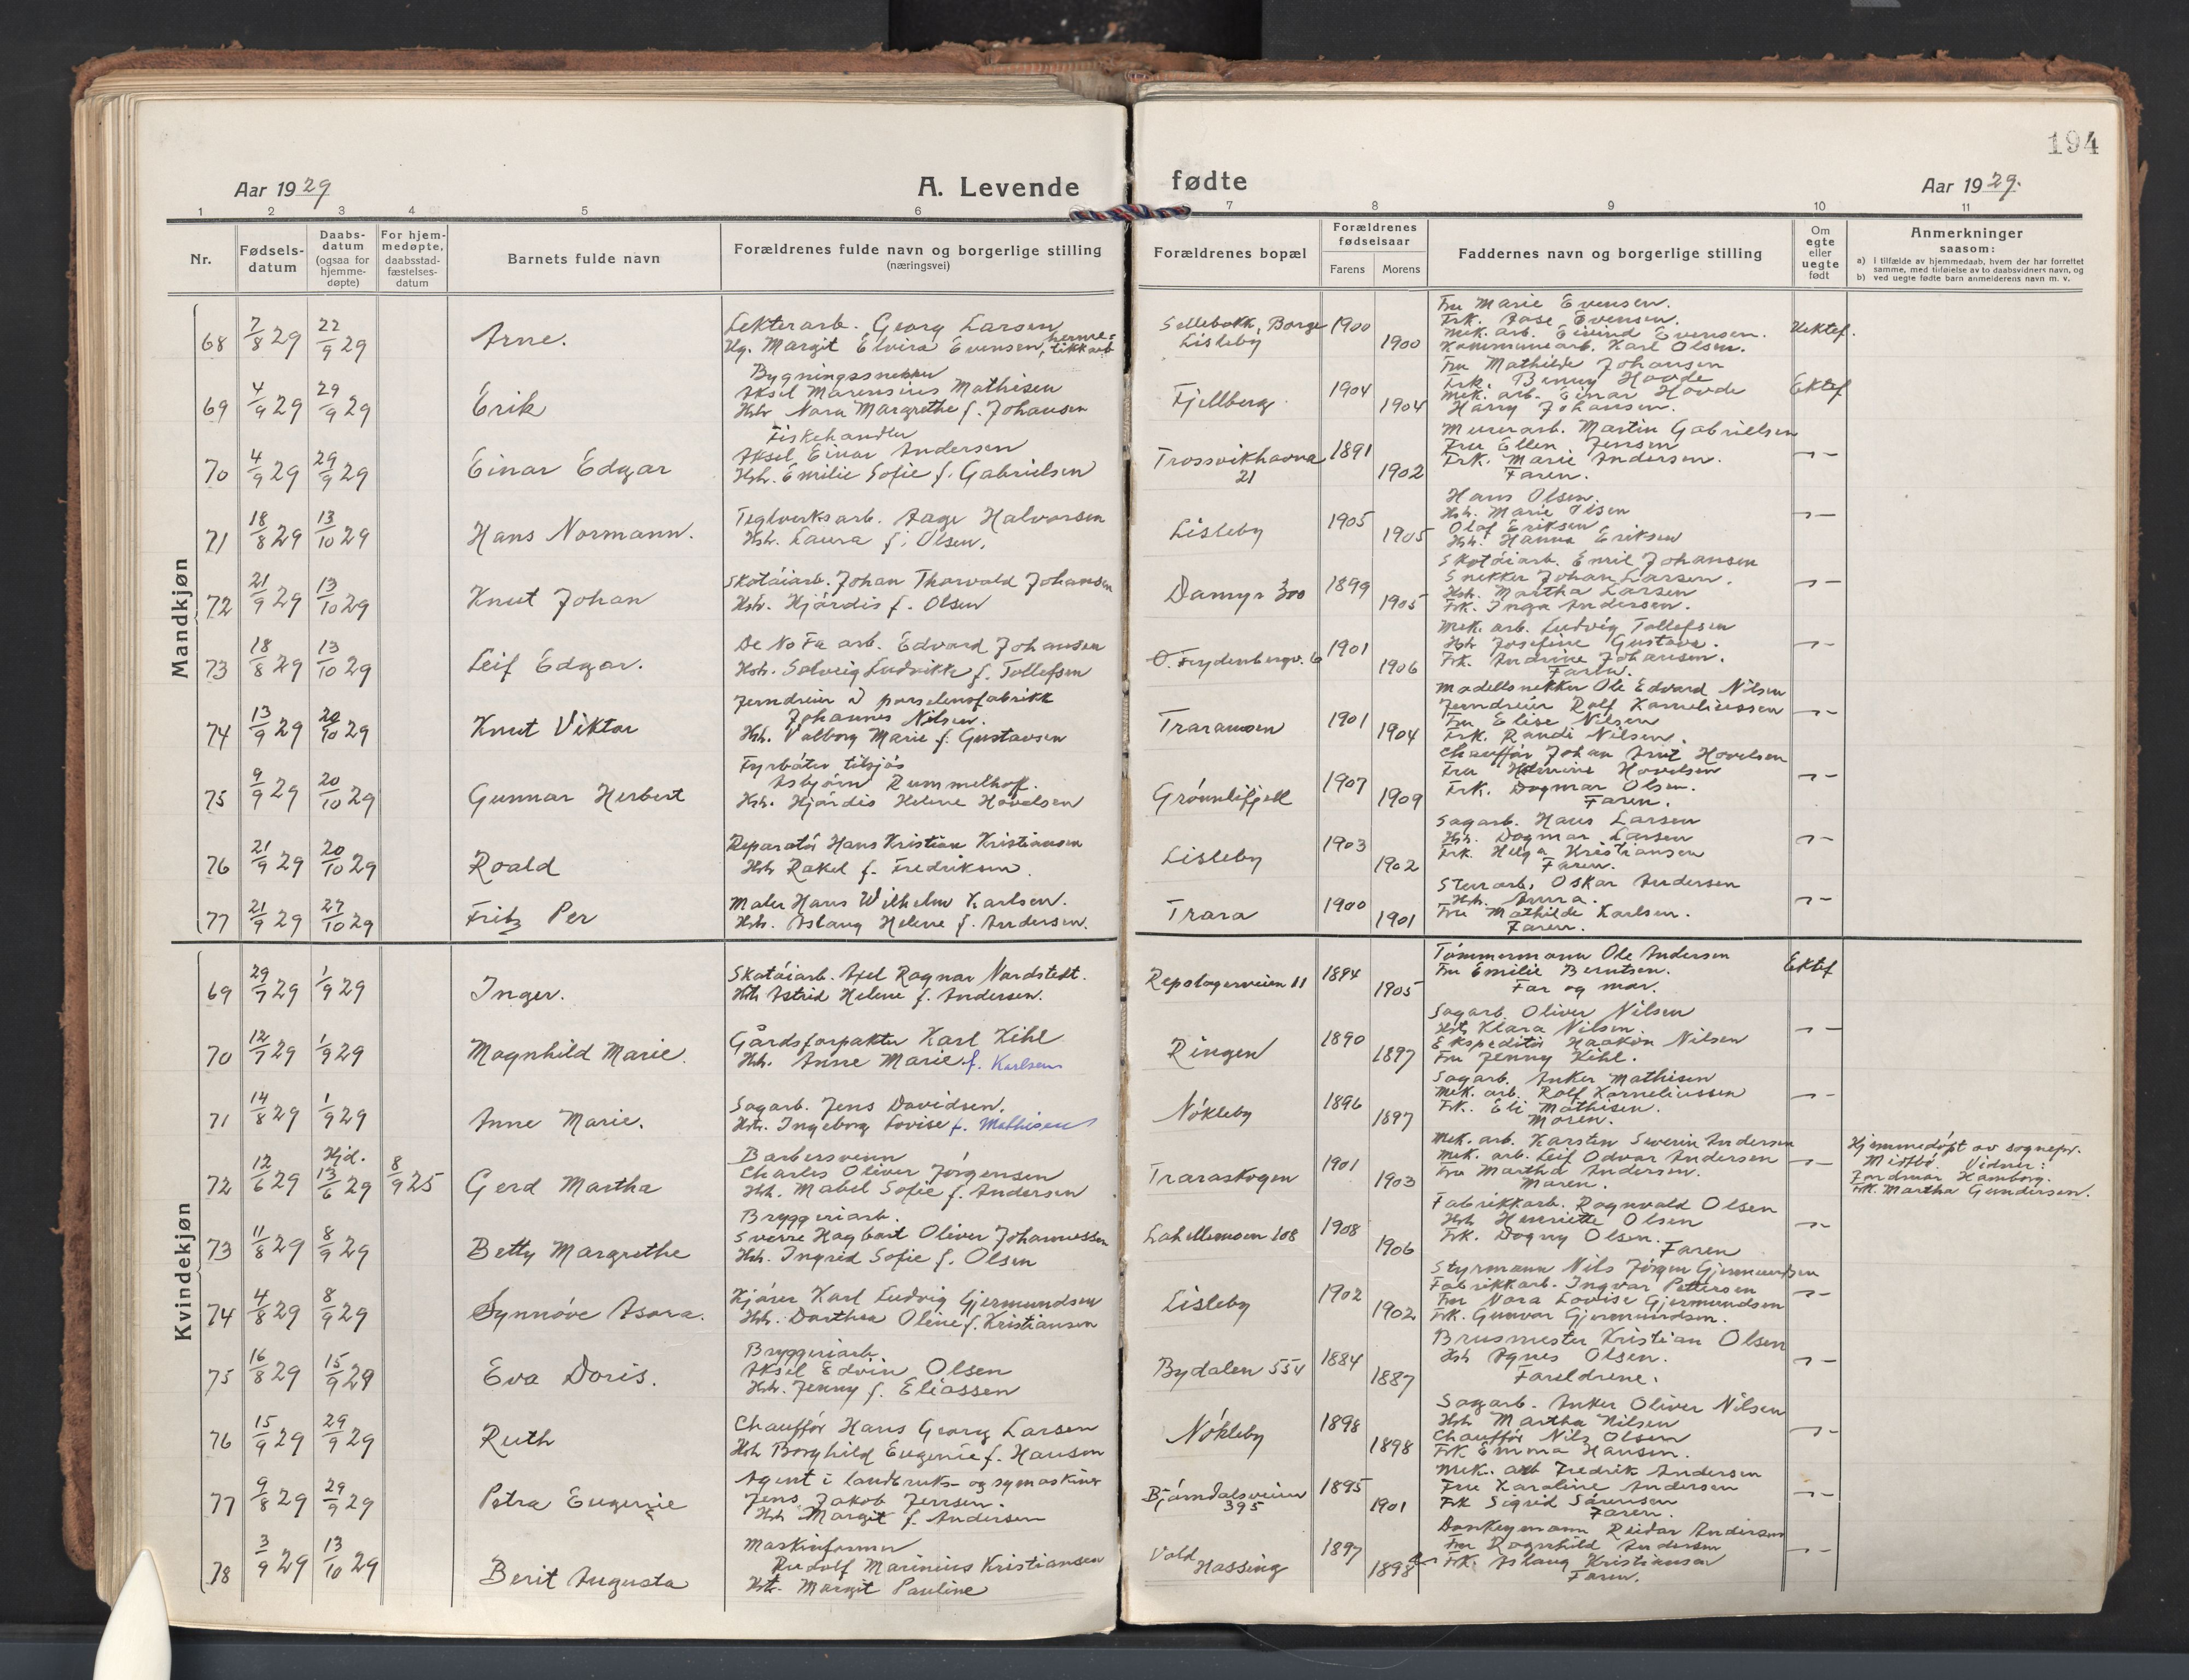 194
Aar 1929
A. Levende
fødte
Aar 1929.
1 2 3 4 5 6 7 8 9 10 11
Nr.
Fødsels-
datum
Daabs-
datum
(ogsaa for
hjemme-
døpte)
For hjem-
medøpte,
daabsstad-
fæstelses-
datum
Barnets fulde navn
Forældrenes fulde navn og borgerlige stilling
(næringsvei)
Forældrenes bopæl
Forældrenes
fødselsaar
Farens Morens
Faddernes navn og borgerlige stilling
Om
egte
eller
uegte
født
Anmerkninger
saasom:
a) i tilfælde av hjemmedaab, hvem der har forrettet
samme, med tilføielse av to daabsvidners navn, og
b) ved uegte fødte barn anmelderens navn m. v.
Mandkjøn
68 7/8 29 22/9 29 Arne.
Lekterarb. Georg Larsen
Ug. Margit Elvira Evensen, herme-
tikkarb
Sellebakk, Borge
Lisleby
1900 1900
Fru Marie Evensen.
Frk. Aase Evensen.
Mek. arb. Eivind Evensen.
Kommunearb. Karl Olsen.
Uektef.
69 4/9 29 29/9 29 Erik
Bygningssnekker
Aksel Marensius Mathisen
Hstr. Nora Margrethe f. Johansen
Fjellberg
1904 1904
Fru Mathilde Johansen
Frk. Benny Hovde
Mek. arb. Einar Hovde
Harry Johansen.
Ektef
70 4/9 29 29/9 29 Einar Edgar
Fiskehandler
Aksel Einar Andersen
Hstr. Emilie Sofie f. Gabrielsen
Trossvikhavna
21
1891 1902
Murerarb. Martin Gabrielsen
Fru Ellen Jensen
Frk. Marie Andersen.
Faren.
71 18/8 29 13/10 29 Hans Normann.
Teglverksarb. Aage Halvorsen
Hstr. Laura f. Olsen.
Lisleby
1905 1905
Hans Olsen.
Hstr. Marie Olsen
Olaf Eriksen
Hstr. Hanna Eriksen
72 21/9 29 13/10 29 Knut Johan
Skotøiarb. Johan Thorvald Johansen
Hstr. Hjørdis f. Olsen
Damyr 300
1899 1905
Skotøiarb. Emil Johansen
Snekker Johan Larsen.
Hstr. Martha Larsen
Frk. Inga Andersen.
73 18/8 29 13/10 29 Leif Edgar.
De No Fa arb. Edvard Johansen
Hstr. Solveig Ludvikke f. Tollefsen
O. Frydenbergv. 6
1901 1906
Mek. arb. Ludvig Tollefsen
Hstr Josefine Gustavs.
Frk. Andrine Johansen.
Faren.
74 13/9 29 20/10 29 Knut Viktor
Jerndreier v porselensfabrikk
Johannes Nilsen.
Hstr. Valborg Marie f. Gustavsen
Traramoen
1901 1904
Modellsnekker Ole Edvard Nilsen
Jerndreier Rolf Korneliussen
Fru Elise Nilsen
Frk. Randi Nilsen.
75 9/9 29 20/10 29 Gunnar Herbert
Fyrbøter tilsjøs
Asbjørn Rummelhoff.
Hstr. Hjørdis Helene Hovelsen
Grønnlifjell
1907 1909
Chauffør Johan Hovelsen
Fru Hovelsen
Frk. Dagmar Olsen.
Faren.
76 21/9 29 20/10 29 Roald
Reparatør Hans Kristian Kristiansen
Hstr Rakel f. Fredriksen.
Lisleby
1903 1902
Sagarb. Hans Larsen
Hstr. Dagmar Larsen
Frk. Helga Kristiansen
Faren.
77 21/9 29 27/10 29 Fritz Per
Maler Hans Wilhelm Karlsen.
Hstr. Aslaug Helene f. Andersen.
Trara
1900 1901
Stenarb. Oskar Andersen
Hstr. Anna.
Fru Mathilde Karlsen.
Faren.
Kvindekjøn
69 29/7 29 1/9 29 Inger.
Skotøiarb. Axel Ragnar Nordstedt.
Hstr Astrid Helene f. Andersen.
Repslagerveien 11
1894 1905
Tømmermann Ole Andersen
Fru Emilie Berntsen.
Far og mor.
Ektef
70 12/7 29 1/9 29 Magnhild Marie.
Gårdsforpakter Karl Kihl
Hstr. Anne Marie f. Karlsen
Ringen
1890 1897
Sagarb. Oliver Nilsen
Hstr Klara Nilsen.
Ekspeditør Haakon Nilsen
Fru Jenny Kihl.
71 14/8 29 1/9 29 Anne Marie.
Sagarb. Jens Davidsen.
Hstr. Ingeborg Lovise f. Mathisen
Nøkleby
1896 1897
Sagarb. Anker Mathisen
Mek. arb. Rolf Korneliussen
Frk. Eli Mathisen.
Moren.
72 12/6 29 Hjd. 13/6 29 8/9 25 Gerd Martha
Barbersvenn
Charles Oliver Jørgensen
Hstr. Mabel Sofie f. Andersen
Traraskogen
1901 1903
Mek. arb. Karsten Severin Andersen
Mek. arb. Leif Odvar Andersen
Fru Martha Andersen.
Moren.
Hjemmedøpt av sognepr.
Vidner:
Jordmor Hamborg.
Frk. Martha Gundersen.
73 11/8 29 8/9 29 Betty Margrethe
Bryggeriarb.
Sverre Hagbart Oliver Johannessen
Hstr. Ingrid Sofie f. Olsen
Lahellemoen 108
1908 1906
Fabrikkarb. Ragnvald Olsen
Hstr Henriette Olsen
Frk. Dagny Olsen.
Faren
74 4/8 29 8/9 29 Synnøve Asora.
Kjører Karl Ludvig Gjermundsen
Hstr. Dorthea Oline f. Kristiansen
Lisleby
1902 1902
Styrmann Nils Jørgen Gjermundsen
Fabrikkarb. Ingvar Pettersen
Fru Nora Lovise Gjermundsen
Frk. Gunvor Gjermundsen.
75 16/8 29 15/9 29 Eva Doris.
Bryggeriarb.
Aksel Edvin Olsen
Hstr. Jenny f. Eliassen
Bydalen 554
1884 1887
Brusmester Kristian Olsen
Hstr Agnes Olsen.
Foreldrene.
76 15/9 29 29/9 29 Ruth
Chauffør Hans Georg Larsen
Hstr Borghild Eugenie f. Hansen
Nøkleby
1898 1898
Sagarb. Anker Oliver Nilsen
Hstr Martha Nilsen
Chauffør Nils Olsen
Frk Emma Hansen.
77 9/8 29 29/9 29 Petra Eugenie
Agent i landbruks- og symaskiner
Jens Jakob Jensen.
Hstr Margit f. Andersen
Bjørndalsveien
395
1895 1901
Mek. arb Fredrik Andersen
Fru Karoline Andersen
Frk Sigrid Sørensen
Faren.
78 3/9 29 13/10 29 Berit Augusta
Maskinformer
Rudolf Marinius Kristiansen
Hstr. Margit Pauline
Vold
Hassing
1897 1898
Donkeymann Reidar Andersen
Fru Ragnhild Andersen
Frk. Aslaug Kristiansen
Faren.